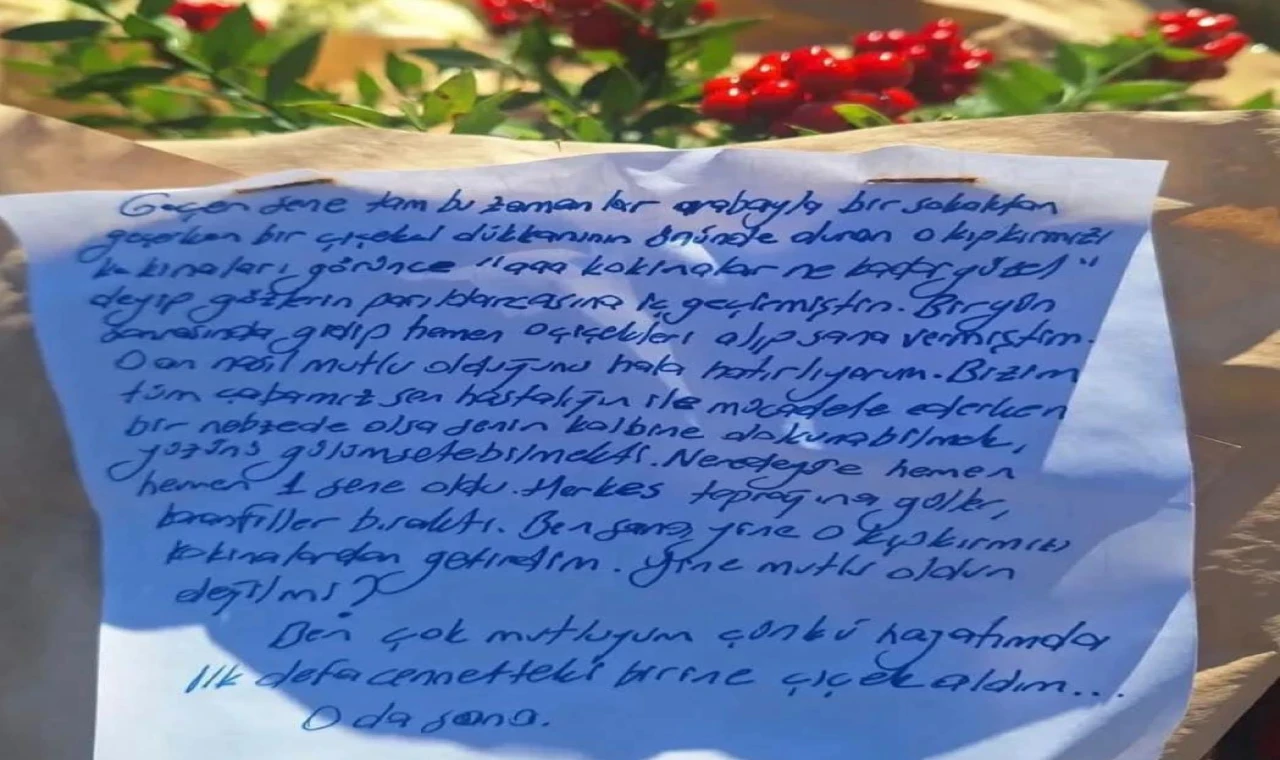 Geçen sene tam bu zamanlar arabayla bir sokaktan
geçerken bir çiçekçi dükkanının önünde duran o kıpkırmızı
kokinaları görünce "aaa kokinalar ne kadar güzel"
deyip gözlerin parıldarcasına iç geçirmiştin. Bir gün
sonrasında gidip hemen o çiçekleri alıp sana vermiştim.
O an nasıl mutlu olduğunu hala hatırlıyorum. Bizim
tüm çabamız sen hastalığın ile mücadele ederken
bir nebzede olsa senin kalbine dokunabilmek,
yüzünü gülümsetebilmekti. Neredeyse hemen
hemen 1 sene oldu. Herkes toprağına güller,
karanfiller bıraktı. Ben sana yine o kıpkırmızı
kokinalardan getirdim. Yine mutlu oldun
değilmi?
Ben çok mutluyum çünkü hayatımda
ilk defa cennetteki birine çiçek aldım...
O da sana.